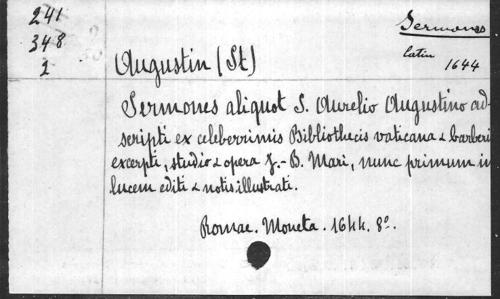 241
348
2
Sermones
latin
1644
Augustin (St)
Sermones aliquot S. Aurelio Augustino ad-
scripti ex celeberrimis Bibliothecis vaticana & barberi
excerpti, studio & opera J.-B. Mari, nunc primum in
lucem editi & notis illustrati.
Romae. Moneta. 1644. 8º.